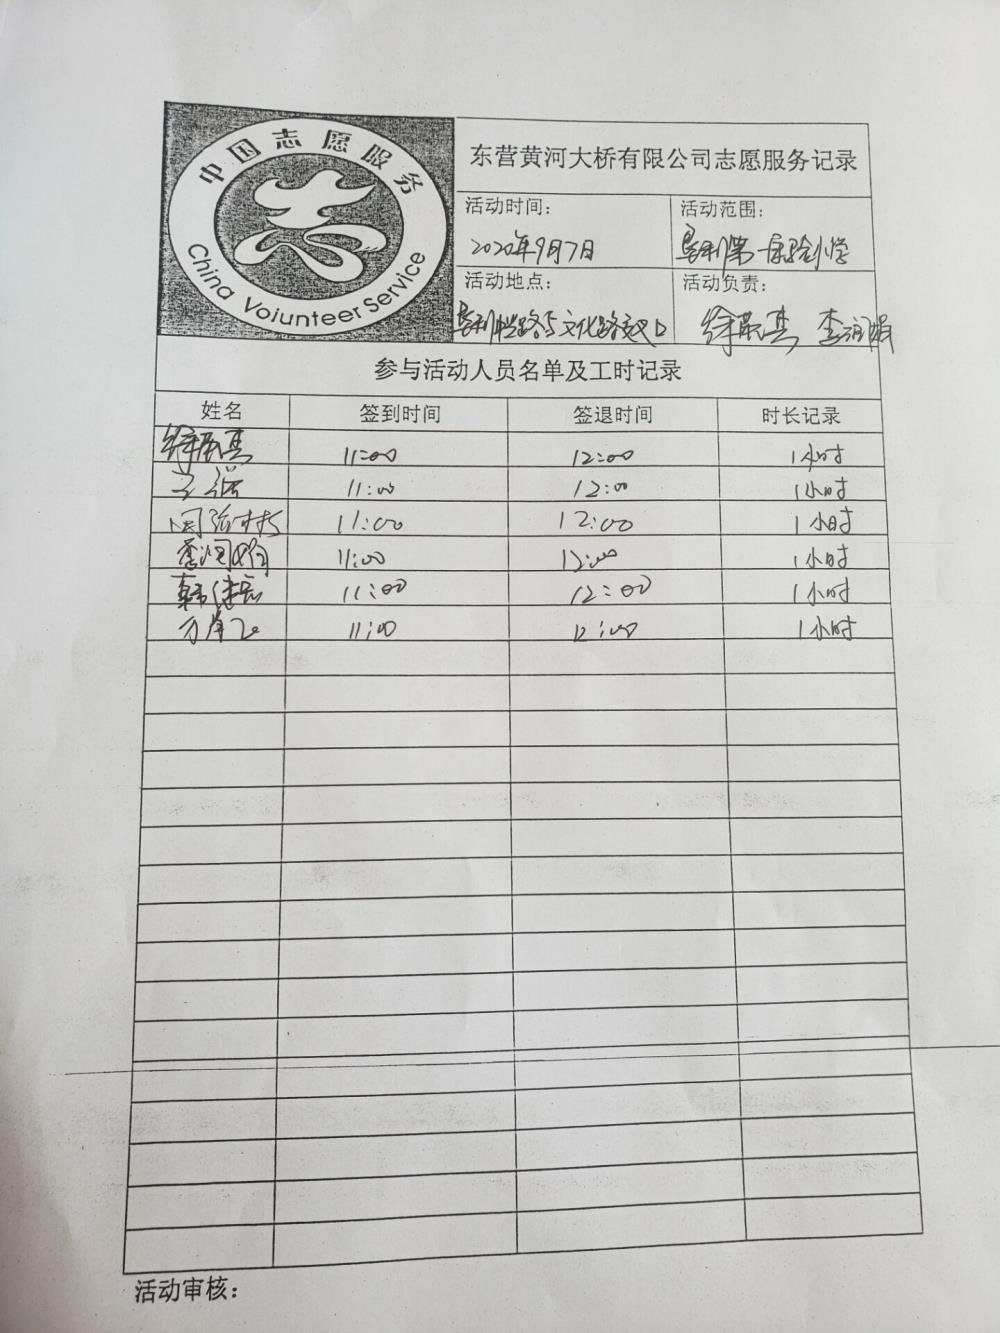 中国志愿服务
China Voiunteer Service
东营黄河大桥有限公司志愿服务记录
活动时间： 活动范围：
2020年9月7日 垦利第一实验小学
活动地点： 活动负责：
路与文化路交叉口 徐 李
参与活动人员名单及工时记录
姓名 签到时间 签退时间 时长记录
11:00 12:00 1小时
11:00 12:00 1小时
11:00 12:00 1小时
11:00 12:00 1小时
韩 11:00 12:00 1小时
11:00 12:00 1小时
活动审核：